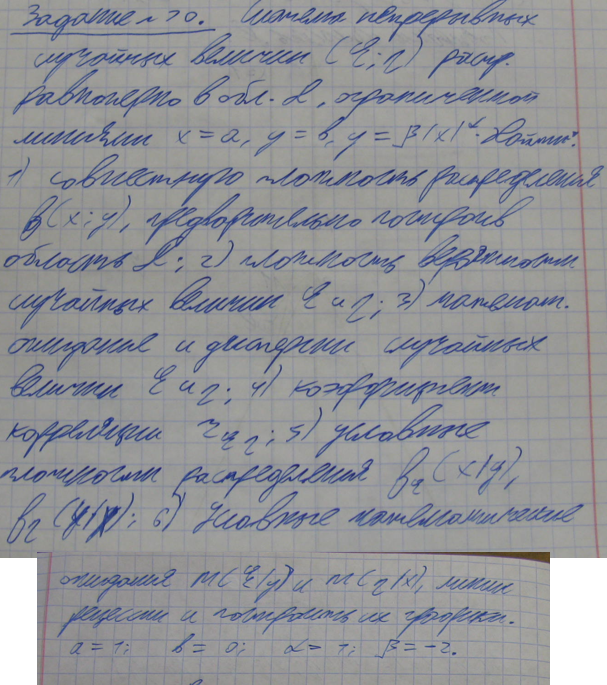 Задание № 70. Система непрерывных
случайных величин (ξ; η) распр.
равномерно в обл. D, ограниченной
линиями x = a, y = b, y = β|x|^α. Найти:
1) совместную плотность распределения
f(x; y), предварительно построив
область D; 2) плотность вероятности
случайных величин ξ и η; 3) математ.
ожидание и дисперсии случайных
величин ξ и η; 4) коэффициент
корреляции r ξη; 5) условные
плотности распределения f ξ (x|y),
f η (y|x); 6) Условные математические
ожидания M(ξ|y) и M(η|x), линии
регрессии и построить их графики.
a = 1; b = 0; α = 1; β = -2.